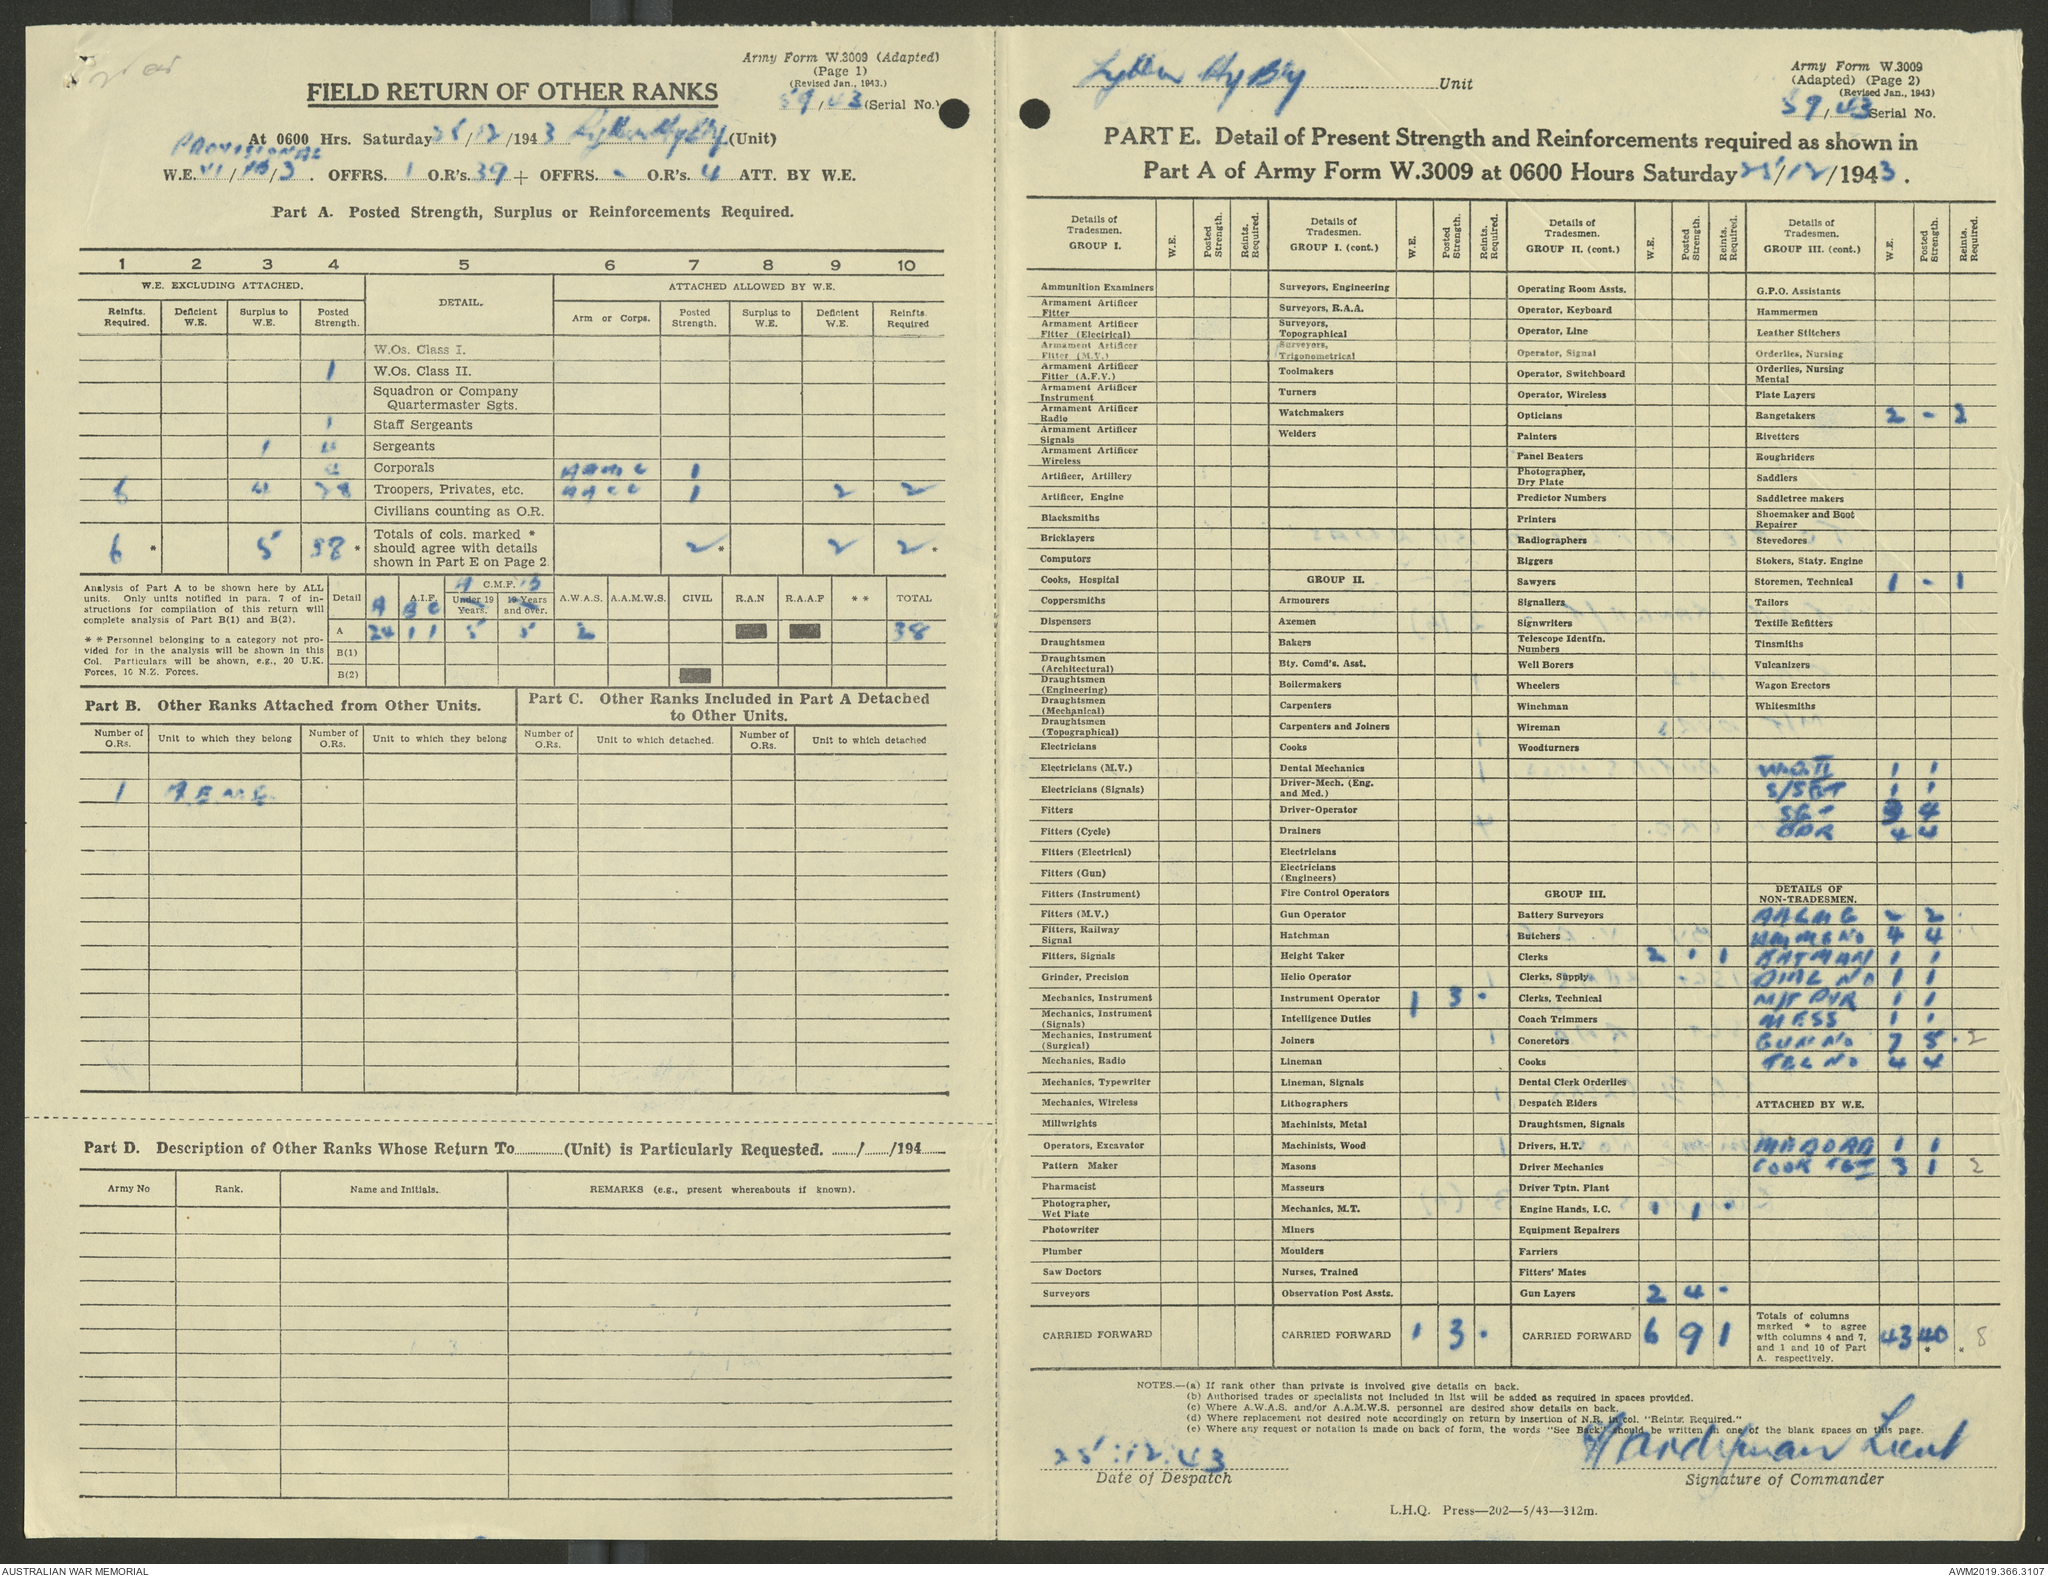 Army Form W.3009 (Adapted)
(Page 1)
(Revised Jan., 1943.)
59/43 (Serial No.)
FIELD RETURN OF OTHER RANKS
At 0600 Hrs. Saturday 25/12/1943 Lytton Hy Bty (Unit)
PROVISIONAL
W.E. VI/ /3. OFFRS. 1 O.R's. 39 + OFFRS. - O.R's. 4 ATT. BY W.E.
Part A. Posted Strength, Surplus or Reinforcements Required.
1 2 3 4 5 6 7 8 9 10
W.E. EXCLUDING ATTACHED. DETAIL. ATTACHED ALLOWED BY W.E.
Reinfts. Required. Deficient W.E. Surplus to W.E. Posted Strength. Arm or Corps. Posted Strength. Surplus to W.E. Deficient W.E. Reinfts. Required
W.Os. Class I.
1 W.Os. Class II.
Squadron or Company
Quartermaster Sgts.
1 Staff Sergeants
1 4 Sergeants
4 Corporals AAMC 1
6 4 28 Troopers, Privates, etc. AACC 1 2 2
Civilians counting as O.R.
6 * 5 38 * Totals of cols. marked * should agree with details shown in Part E on Page 2. 2 * 2 2 *
Analysis of Part A to be shown here by ALL units. Only units notified in para. 7 of instructions for compilation of this return will complete analysis of Part B(1) and B(2).
* * Personnel belonging to a category not provided for in the analysis will be shown in this Col. Particulars will be shown, e.g., 20 U.K. Forces, 10 N.Z. Forces.
Detail A.I.F. A B C C.M.F. A B Under 19 Years. 19 Years and over. A.W.A.S. A.A.M.W.S. CIVIL R.A.N R.A.A.F * * TOTAL
A 24 1 1 5 5 2 38
B(1)
B(2)
Part B. Other Ranks Attached from Other Units.
Part C. Other Ranks Included in Part A Detached to Other Units.
Number of O.Rs. Unit to which they belong Number of O.Rs. Unit to which they belong Number of O.Rs. Unit to which detached. Number of O.Rs. Unit to which detached
1 A.E.M.E.
Part D. Description of Other Ranks Whose Return To (Unit) is Particularly Requested. / /194
Army No Rank. Name and Initials. REMARKS (e.g., present whereabouts if known).
Lytton Hy Bty Unit
Army Form W.3009
(Adapted) (Page 2)
(Revised Jan., 1943)
59/43 Serial No.
PART E. Detail of Present Strength and Reinforcements required as shown in
Part A of Army Form W.3009 at 0600 Hours Saturday 25/12/1943.
Details of Tradesmen. GROUP I. W.E. Posted Strength. Reints. Required.
Ammunition Examiners
Armament Artificer Fitter
Armament Artificer Fitter (Electrical)
Armament Artificer Fitter (M.V.)
Armament Artificer Fitter (A.F.V.)
Armament Artificer Instrument
Armament Artificer Radio
Armament Artificer Signals
Armament Artificer Wireless
Artificer, Artillery
Artificer, Engine
Blacksmiths
Bricklayers
Computors
Cooks, Hospital
Coppersmiths
Dispensers
Draughtsmen
Draughtsmen (Architectural)
Draughtsmen (Engineering)
Draughtsmen (Mechanical)
Draughtsmen (Topographical)
Electricians
Electricians (M.V.)
Electricians (Signals)
Fitters
Fitters (Cycle)
Fitters (Electrical)
Fitters (Gun)
Fitters (Instrument)
Fitters (M.V.)
Fitters, Railway Signal
Fitters, Signals
Grinder, Precision
Mechanics, Instrument
Mechanics, Instrument (Signals)
Mechanics, Instrument (Surgical)
Mechanics, Radio
Mechanics, Typewriter
Mechanics, Wireless
Millwrights
Operators, Excavator
Pattern Maker
Pharmacist
Photographer, Wet Plate
Photowriter
Plumber
Saw Doctors
Surveyors
CARRIED FORWARD
Details of Tradesmen. GROUP I. (cont.) W.E. Posted Strength. Reints. Required.
Surveyors, Engineering
Surveyors, R.A.A.
Surveyors, Topographical
Surveyors, Trigonometrical
Toolmakers
Turners
Watchmakers
Welders
GROUP II.
Armourers
Axemen
Bakers
Bty. Comd's. Asst.
Boilermakers
Carpenters
Carpenters and Joiners
Cooks
Dental Mechanics
Driver-Mech. (Eng. and Med.)
Driver-Operator
Drainers
Electricians
Electricians (Engineers)
Fire Control Operators
Gun Operator
Hatchman
Height Taker
Helio Operator
Instrument Operator 1 3 -
Intelligence Duties
Joiners
Lineman
Lineman, Signals
Lithographers
Machinists, Metal
Machinists, Wood
Masons
Masseurs
Mechanics, M.T.
Miners
Moulders
Nurses, Trained
Observation Post Assts.
CARRIED FORWARD 1 3 -
Details of Tradesmen. GROUP II. (cont.) W.E. Posted Strength. Reints. Required.
Operating Room Assts.
Operator, Keyboard
Operator, Line
Operator, Signal
Operator, Switchboard
Operator, Wireless
Opticians
Painters
Panel Beaters
Photographer, Dry Plate
Predictor Numbers
Printers
Radiographers
Riggers
Sawyers
Signallers
Signwriters
Telescope Identfn. Numbers
Well Borers
Wheelers
Winchman
Wireman
Woodturners
GROUP III.
Battery Surveyors
Butchers
Clerks 2 1 1
Clerks, Supply
Clerks, Technical
Coach Trimmers
Concretors
Cooks
Dental Clerk Orderlies
Despatch Riders
Draughtsmen, Signals
Drivers, H.T.
Driver Mechanics
Driver Tptn. Plant
Engine Hands, I.C. 1 1 -
Equipment Repairers
Farriers
Fitters' Mates
Gun Layers 2 4 -
CARRIED FORWARD 6 9 1
Details of Tradesmen. GROUP III. (cont.) W.E. Posted Strength. Reints. Required.
G.P.O. Assistants
Hammermen
Leather Stitchers
Orderlies, Nursing
Orderlies, Nursing Mental
Plate Layers
Rangetakers 2 - 2
Rivetters
Roughriders
Saddlers
Saddletree makers
Shoemaker and Boot Repairer
Stevedores
Stokers, Staty. Engine
Storemen, Technical 1 - 1
Tailors
Textile Refitters
Tinsmiths
Vulcanizers
Wagon Erectors
Whitesmiths
W.O.II 1 1
S/SGT 1 1
SGT 3 4
BDR 4 4
DETAILS OF NON-TRADESMEN.
AALMG 2 2
AMMG NO 4 4
BATMAN 1 1
DIAL NO 1 1
M/T DVR 1 1
MESS 1 1
GUN NO 7 5 2
TEL NO 4 4
ATTACHED BY W.E.
MED ORD 1 1
COOK 3 1 2
Totals of columns marked * to agree with columns 4 and 7, and 1 and 10 of Part A. respectively. 43 40 * * 8
NOTES.—(a) If rank other than private is involved give details on back.
(b) Authorised trades or specialists not included in list will be added as required in spaces provided.
(c) Where A.W.A.S. and/or A.A.M.W.S. personnel are desired show details on back.
(d) Where replacement not desired note accordingly on return by insertion of N.R. in col. "Reints. Required."
(e) Where any request or notation is made on back of form, the words "See Back" should be written in one of the blank spaces on this page.
25:12:43
Date of Despatch
Lieut
Signature of Commander
L.H.Q. Press—202—5/43—312m.
AUSTRALIAN WAR MEMORIAL
AWM2019.366.3107